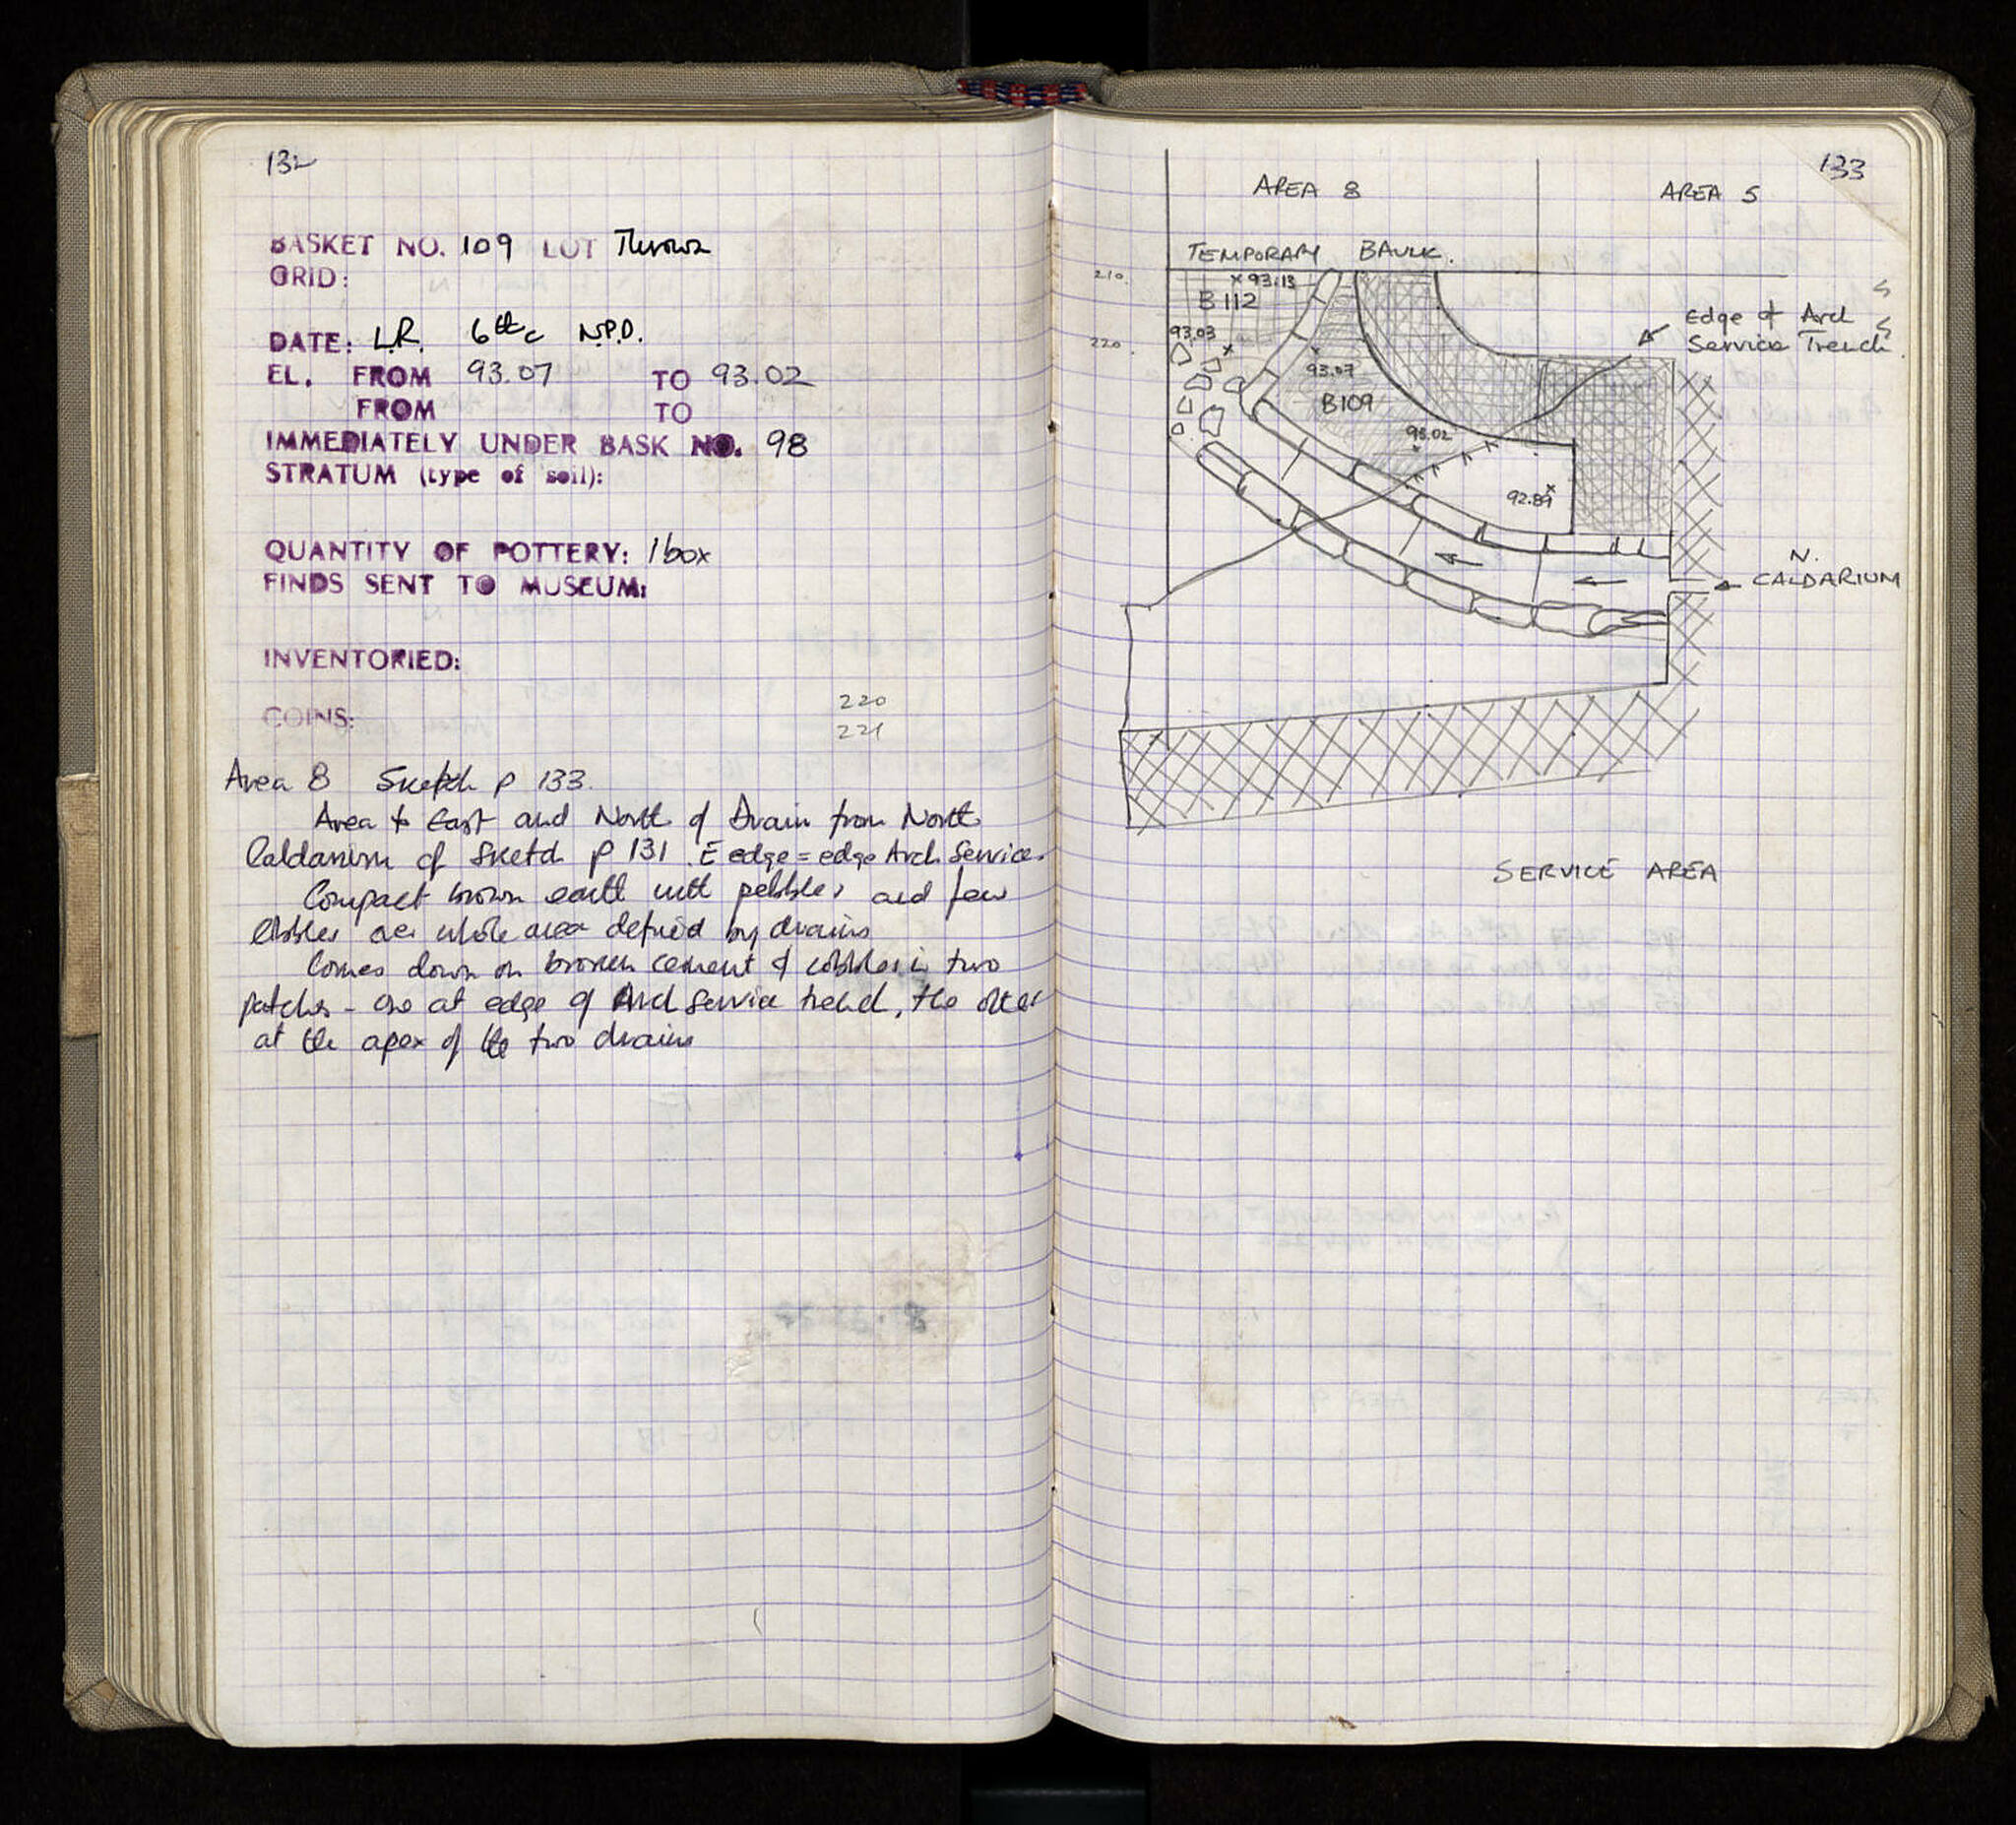 132
BASKET NO. 109 LOT Thrown
GRID:
DATE: L.R. 6th c N.P.D.
EL. FROM 93.07 TO 93.02
FROM TO
IMMEDIATELY UNDER BASK NO. 98
STRATUM (type of soil):
QUANTITY OF POTTERY: 1 box
FINDS SENT TO MUSEUM:
INVENTORIED:
COINS:
220
221
Area 8 Sketch p 133.
Area to East and North of Drain from North
Caldarium cf Sketch p 131. E edge = edge Arch. Service.
Compact brown earth with pebbles and few
cobbles over whole area defined by drains
Comes down on broken cement & cobbles in two
patches - one at edge of Arch Service trench, the other
at the apex of the two drains
133
AREA 8
AREA 5
TEMPORARY BAULK.
210.
× 93.13
B 112
Edge of Arch
Service Trench.
93.03
220.
93.07
B109
93.02
92.89
N.
CALDARIUM
SERVICE AREA